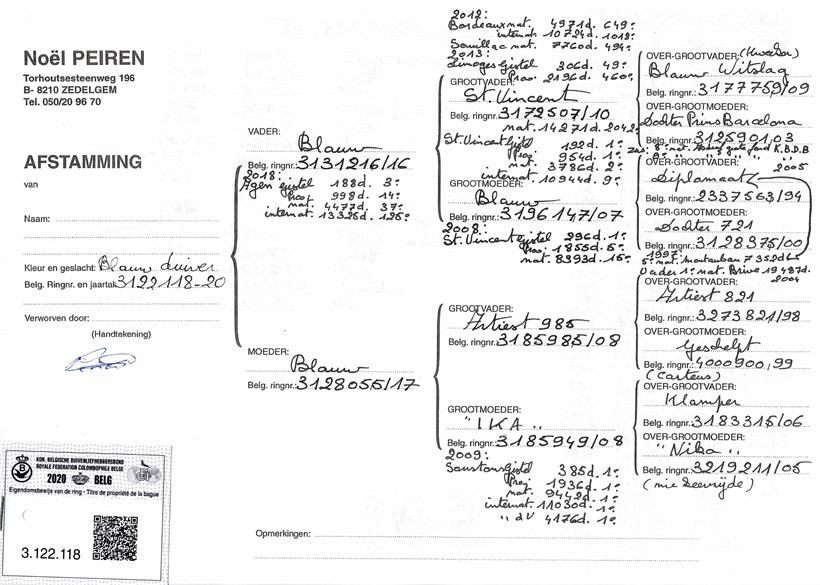 Noël PEIREN
Torhoutsesteenweg 196
B- 8210 ZEDELGEM
Tel. 050/20 96 70
AFSTAMMING
van
Naam:
Kleur en geslacht: Blauw duiver
Belg. Ringnr. en jaartal: 3122118-20
Verworven door:
(Handtekening)
KON. BELGISCHE DUIVENLIEFHEBBERSBOND
ROYALE FEDERATION COLOMBOPHILE BELGE
2020 BELG
Eigendomsbewijs van de ring - Titre de propriété de la bague
3.122.118
VADER:
Blauw
Belg. ringnr.: 3131216/16
2018:
Agen gistel 188d. 3e
Prov. 998d. 14e
nat. 4477d. 37e
internat. 13325d. 125e
MOEDER:
Blauw
Belg. ringnr.: 3128055/17
2012:
Bordeaux nat. 4971d. 649e
internat. 10724d. 1018e
Souillac nat. 7760d. 494e
2013:
Limoges gistel 306d. 49e
Prov. 2196d. 460e
GROOTVADER:
St. Vincent
Belg. ringnr.: 3172507/10
nat. 14271d. 2042e
St. Vincent gistel 192d. 1e
Prov. 954d. 1e
nat. 3786d. 2e
internat. 10944d. 9e
GROOTMOEDER:
Blauw
Belg. ringnr.: 3196147/07
2008:
St. Vincent gistel 296d. 1e
Prov. 1855d. 5e
nat. 8393d. 15e
GROOTVADER:
Artiest 985
Belg. ringnr.: 3185985/08
GROOTMOEDER:
"IKA"
Belg. ringnr.: 3185949/08
2009:
Soustons gistel 385d. 1e
Prov. 1936d. 1e
nat. 9442d. 1e
internat. 11030d. 1e
" dV 4176d. 1e
OVER-GROOTVADER: (Kweker)
Blauw Witslag
Belg. ringnr.: 3177759/09
OVER-GROOTMOEDER:
Dochter Prins Barcelona
Belg. ringnr.: 3125901,03
K.B.D.B
2005
OVER-GROOTVADER:
Diplomaat
Belg. ringnr.: 2337563/94
OVER-GROOTMOEDER:
Dochter 721
Belg. ringnr.: 3128375/00
1997
5e nat. Montauban 7352d
Vader 1e nat. Brive 19487d.
2004
OVER-GROOTVADER:
Artiest 821
Belg. ringnr.: 3273821/98
OVER-GROOTMOEDER:
Geschelpt
Belg. ringnr.: 4000900,99
(Carteus)
OVER-GROOTVADER:
Klamper
Belg. ringnr.: 3183315/06
OVER-GROOTMOEDER:
"Nika"
Belg. ringnr.: 3219211/05
(nic Deevrijde)
Opmerkingen: